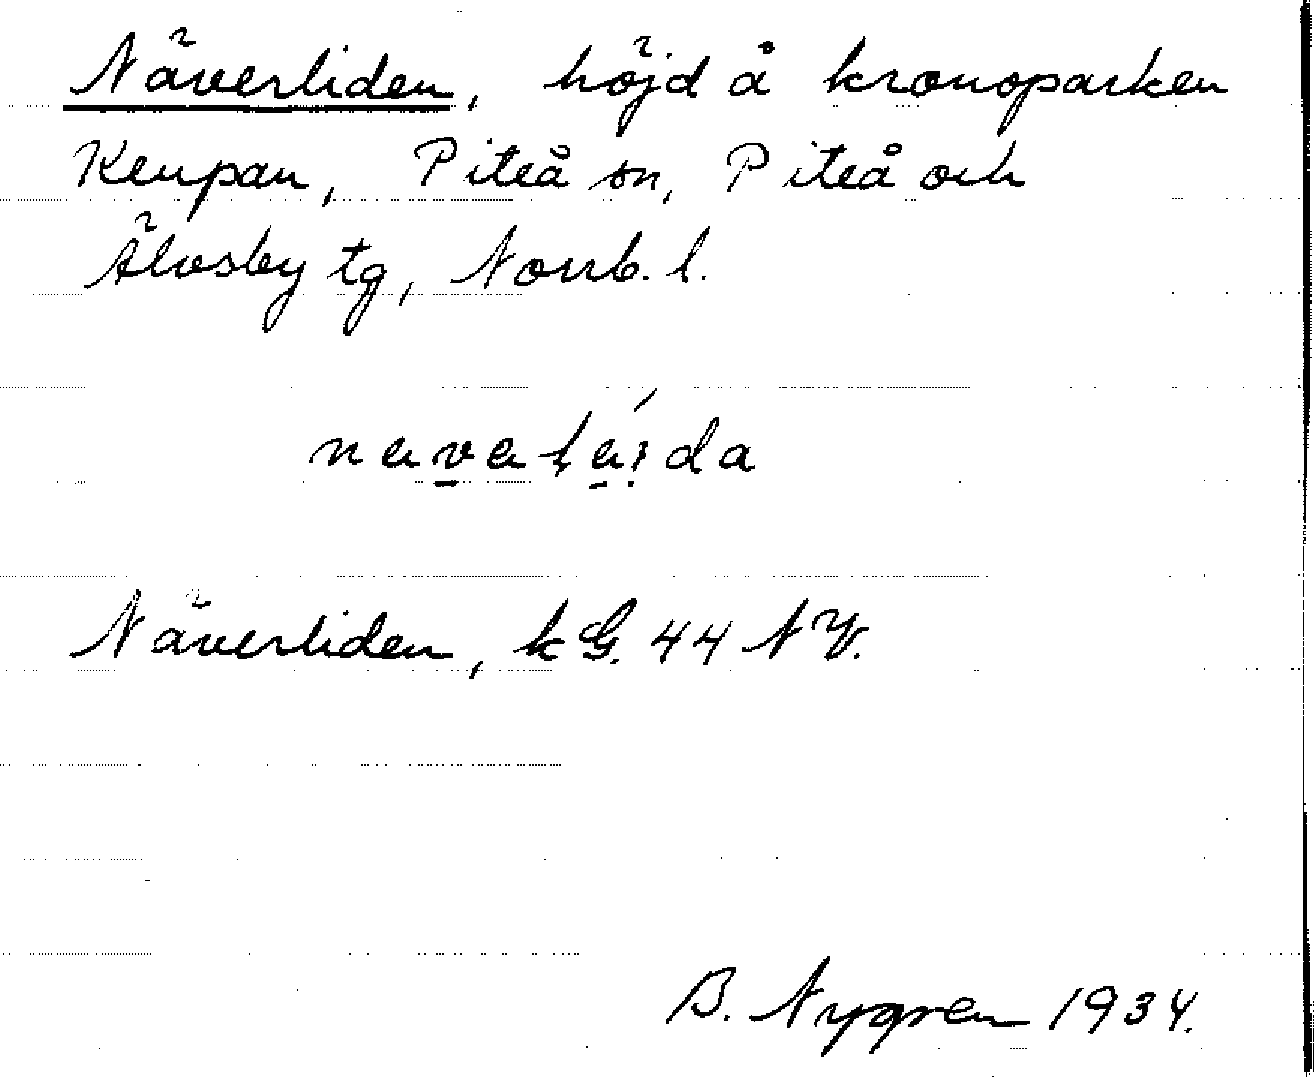 Näverliden, höjd å kronoparken
Keupan, Piteå sn, Piteå och
Älvsby tg, Norrb. l.
Näverliden, kG. 44 NV.
B. Nygren 1934.